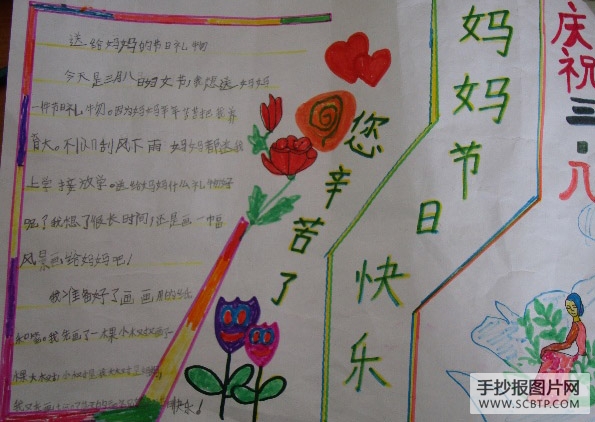 送给妈妈的节日礼物
今天是三月八日妇女节!我想送妈妈
一件节日礼物。因为妈妈辛辛苦苦把我养
育大。不刮风下雨 妈妈都送我
上学接放学。送给妈妈什么礼物好
呢?我想了很长时间,还是画一幅
风景画给妈妈吧!
我准备好了画画用的纸
和笔。我先画了一棵小树又画了
棵大树
快乐!
您辛苦了
妈妈节日
快乐
庆祝三·八
手抄报图片网
WWW.SCBTP.COM